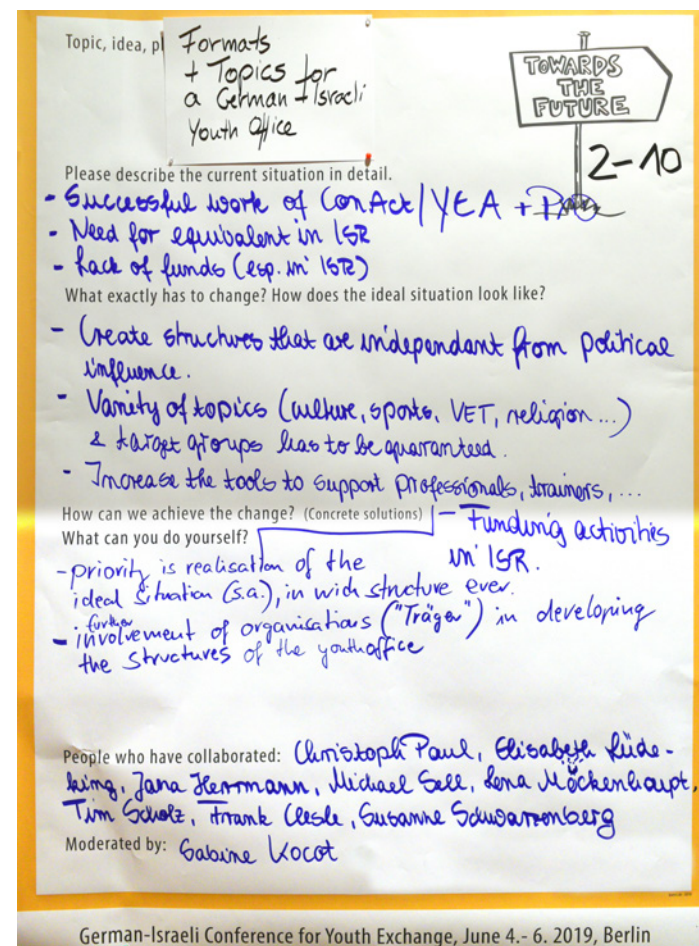 Topic, idea, pl
Formats
+ Topics for
a German-Israeli
Youth Office
TOWARDS
THE
FUTURE
2-10
Please describe the current situation in detail.
- Successful work of ConAct/YEA +
- Need for equivalent in ISR
- Lack of funds (esp. in ISR)
What exactly has to change? How does the ideal situation look like?
- Create structures that are independant from political
influence.
- Variety of topics (culture, sports, VET, religion...)
& target groups has to be guaranteed.
- Increase the tools to support professionals, trainers, ...
How can we achieve the change? (Concrete solutions)
- Funding activities
in ISR.
What can you do yourself?
- priority is realisation of the
ideal situation (s.a.), in wich structure ever.
- further involvement of organisations ("Träger") in developing
the structures of the youthoffice
People who have collaborated: Christoph Paul, Elisabeth Lüde-
king, Jana Herrmann, Michael Sell, Lena Möckenhaupt,
Tim Scholz, Frank Susanne Schwarzenberg
Moderated by: Sabine Kocot
German-Israeli Conference for Youth Exchange, June 4.- 6. 2019, Berlin